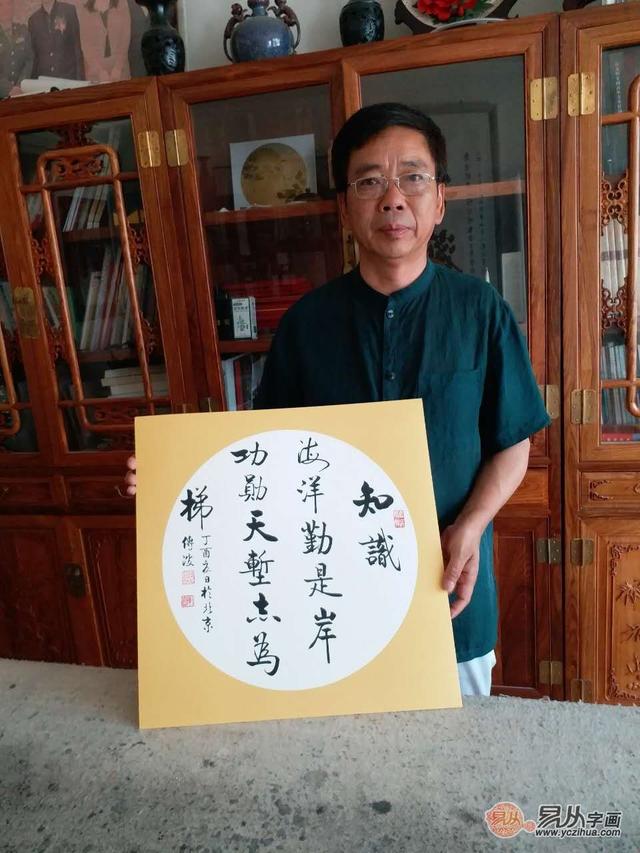 知識
海洋勤是岸
功勋天塹志為
梯
丁酉夏日於北京
易从
易从字画
www.yczihua.com